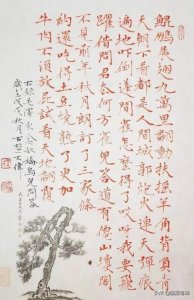 鲲鹏展翅九万里翻动扶摇羊角背负青
天朝下看都是人间城郭炮火連天弹痕
遍地吓倒蓬间雀怎么得了哎呀我要飞
躍借问君去何方雀兒答道有仙山瓊阁
不见前年秋月朗订了三家條
約還吃土豆燒熟了加
牛肉不须放屁試看天地翻覆
右録毛澤東念奴嬌鸟兒问答
歲在戊戌秋月